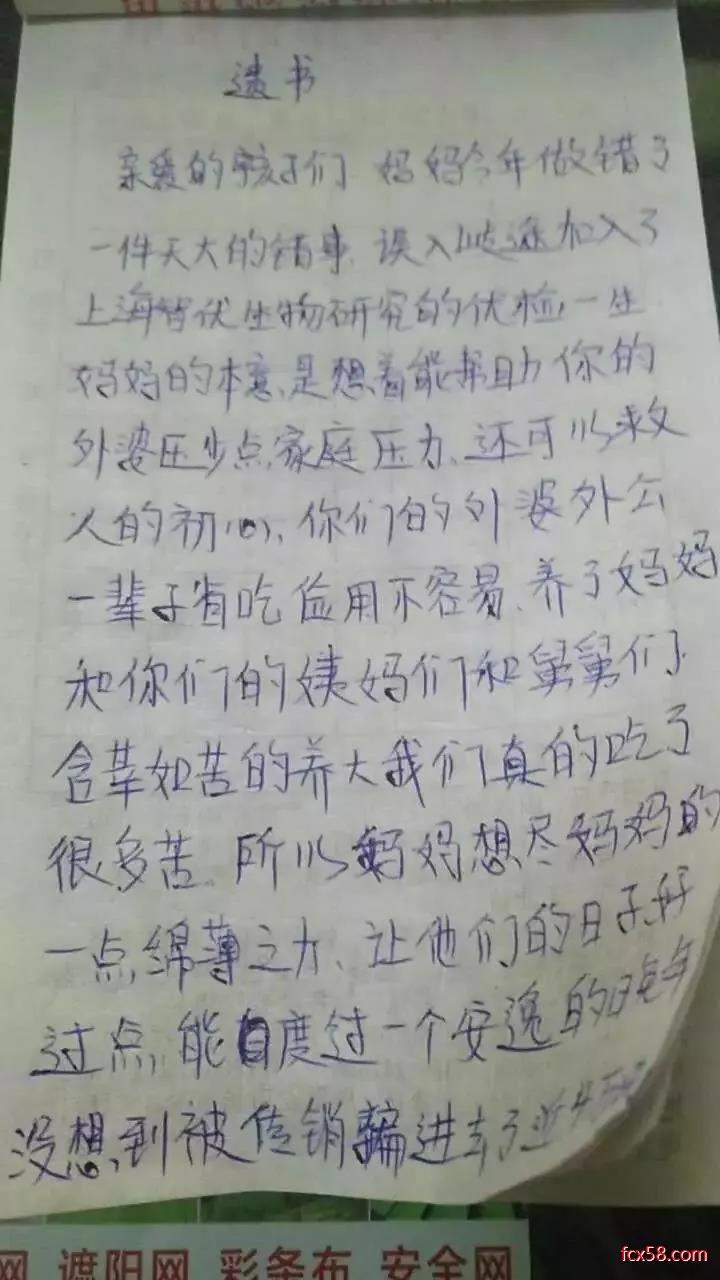 遗书
亲爱的孩子们 妈妈今年做错了
一件天大的错事、误入岐途加入了
上海智伏生物研究的优检一生
妈妈的本意、是想着能帮助你的
外婆压少点家庭压力、还可以救
人的初心、你们的外婆外公
一辈子省吃俭用不容易、养了妈妈
和你们的姨妈们和舅舅们
含莘如苦的养大我们真的吃了
很多苦、所以妈妈想尽妈妈的
一点绵薄之力、让他们的日子好
过点、能度过一个安逸的晚年
没想到被传销骗进去了近
网 遮阳网 彩条布 安全网
fcx58.com